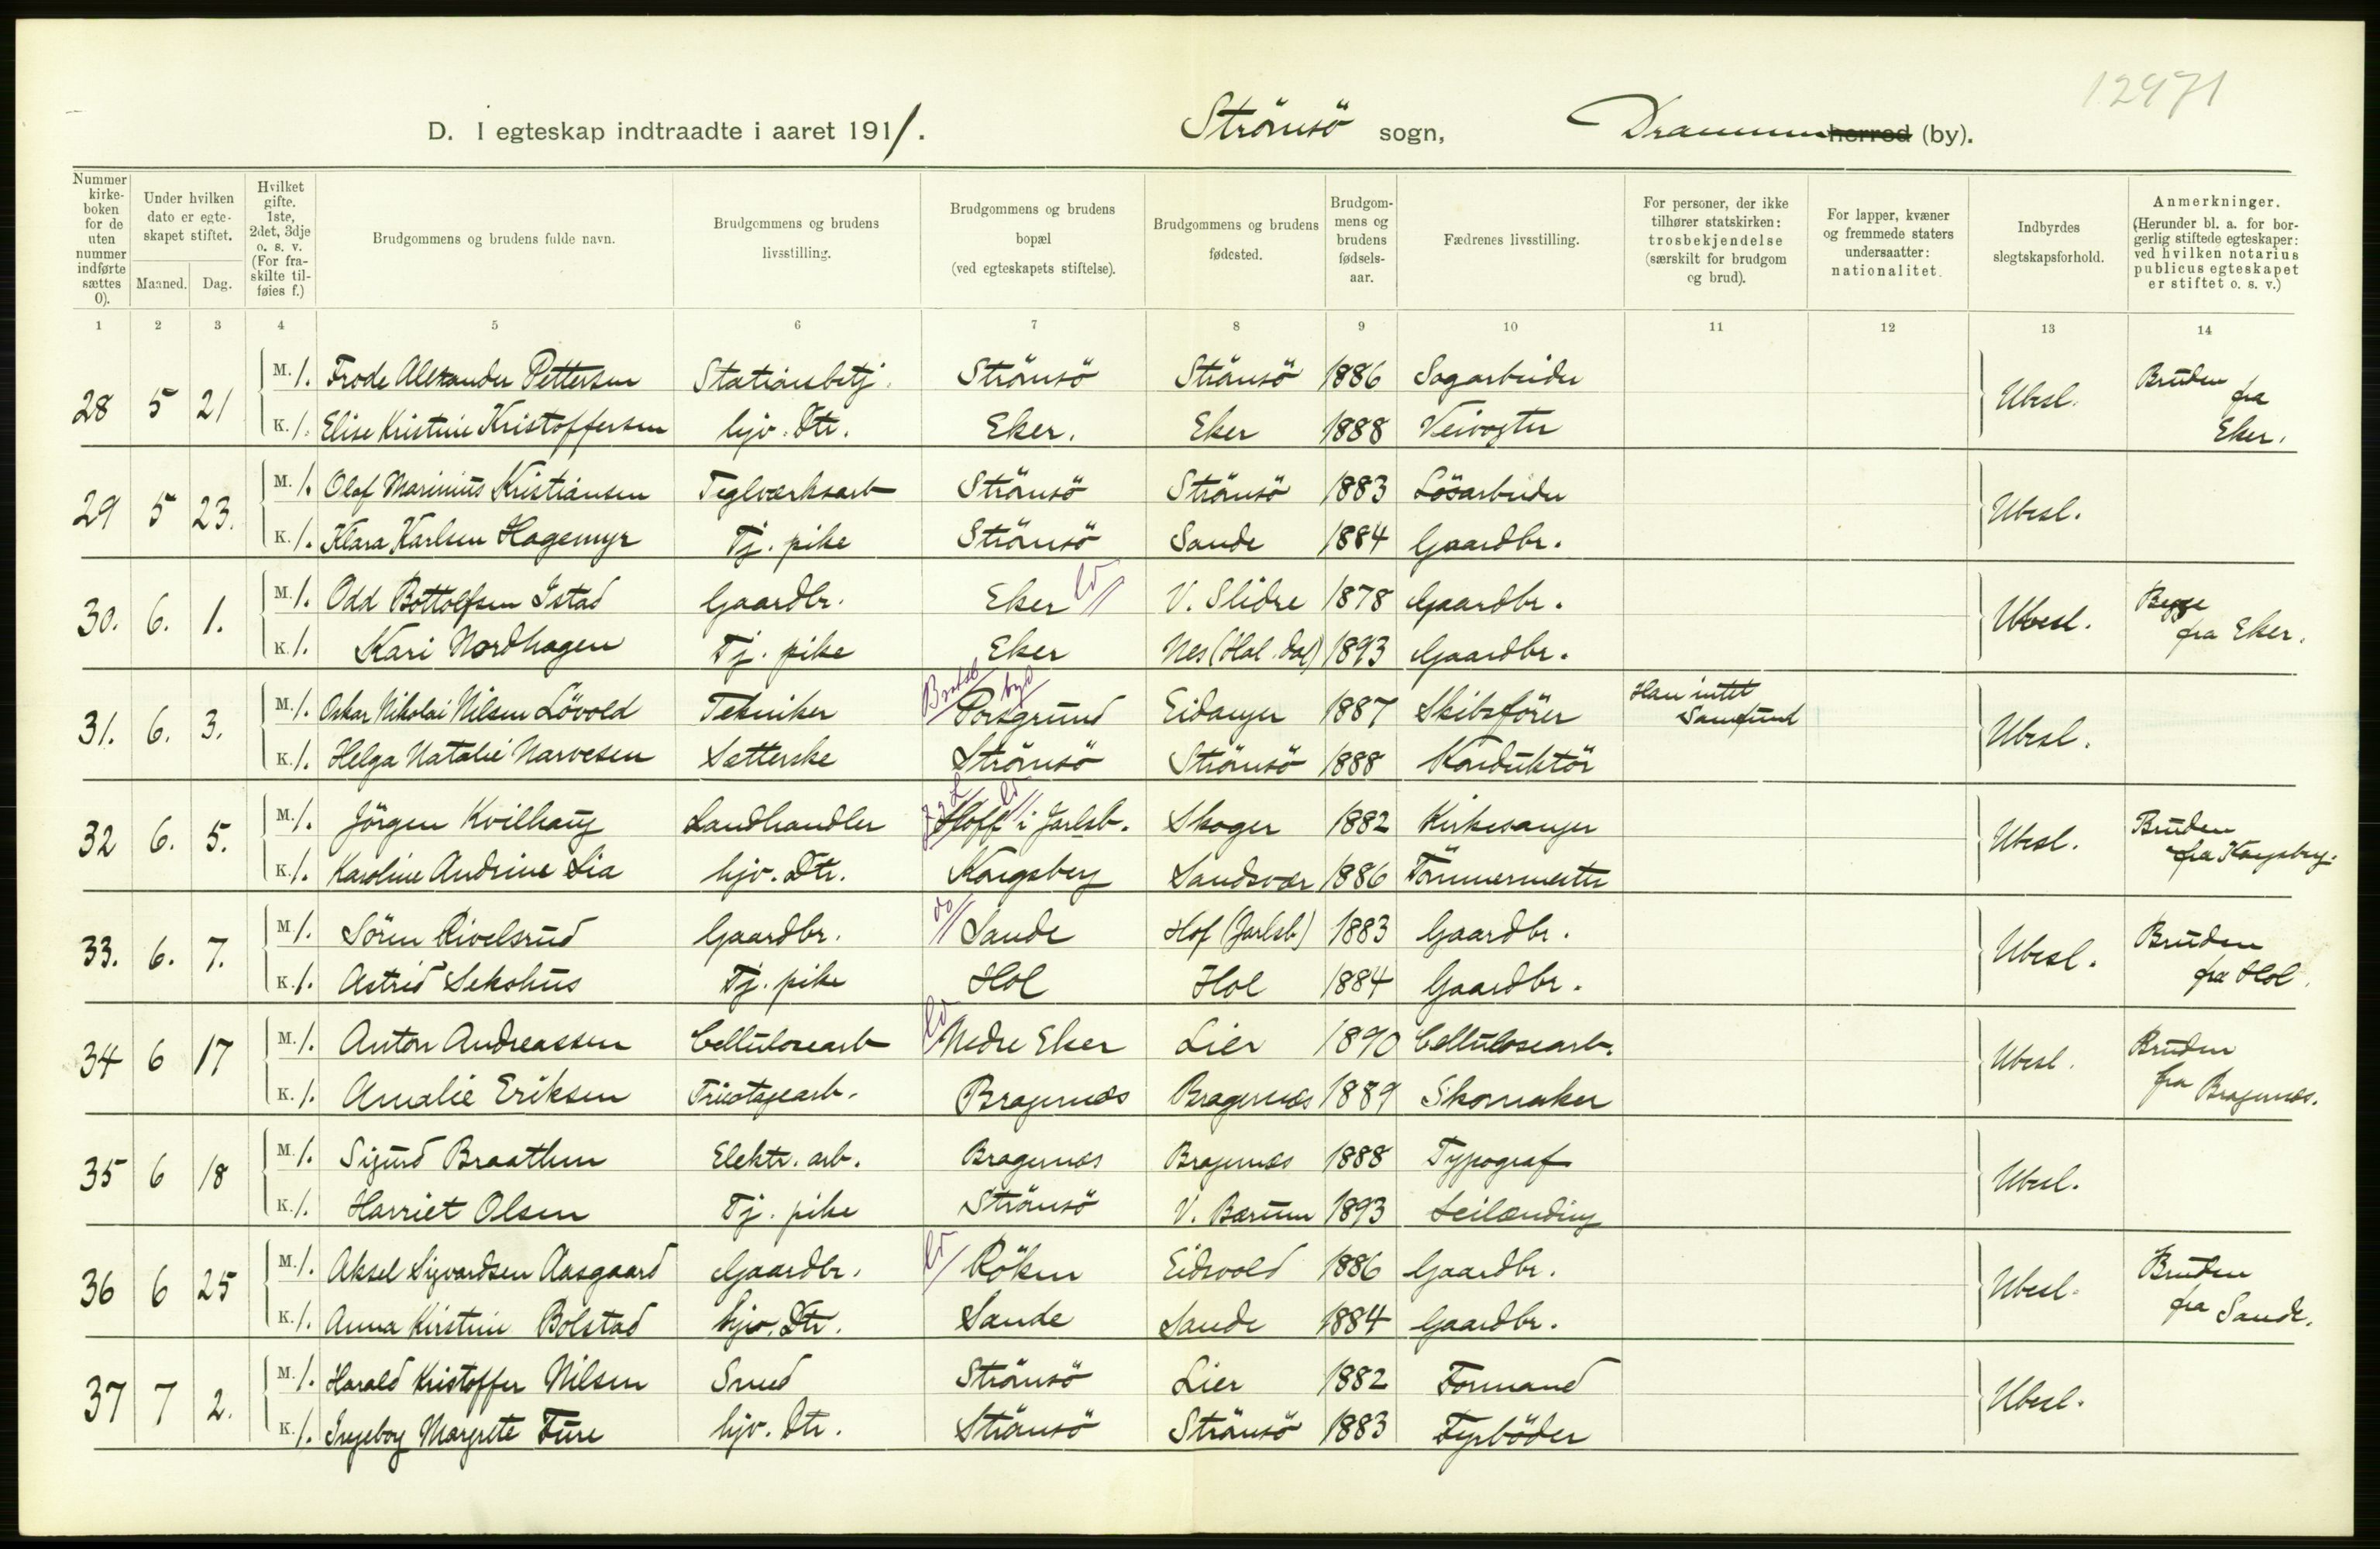 12971
D. I egteskap indtraadte i aaret 1911. Strömsö sogn, Drammen herred (by).
Nummer kirkeboken for de uten nummer indførte sættes 0).
Under hvilken dato er egteskapet stiftet.
Maaned. Dag.
Hvilket gifte. 1ste, 2det, 3dje o. s. v. (For fraskilte tilføies f.)
Brudgommens og brudens fulde navn.
Brudgommens og brudens livsstilling.
Brudgommens og brudens bopæl (ved egteskapets stiftelse).
Brudgommens og brudens fødested.
Brudgommens og brudens fødselsaar.
Fædrenes livsstilling.
For personer, der ikke tilhører statskirken: trosbekjendelse (særskilt for brudgom og brud).
For lapper, kvæner og fremmede staters undersaatter: nationalitet.
Indbyrdes slegtskapsforhold.
Anmerkninger. (Herunder bl. a. for borgerlig stiftede egteskaper: ved hvilken notarius publicus egteskapet er stiftet o. s. v.)
1 2 3 4 5 6 7 8 9 10 11 12 13 14
28 5 21 M. 1. Frode Alexander Pettersen Stationsbetj. Strömsö Strömsö 1886 Sagarbeider Ubesl. Bruden fra Eker.
K. 1. Elise Kristine Kristoffersen hjv. Dtr. Eker. Eker 1888 Veivogter
29 5 23. M. 1. Olaf Marinius Kristiansen Teglværksarb Strömsö Strömsö 1883 Lösarbeider Ubesl.
K. 1. Klara Karlsen Hagemyr Tj. pike Strömsö Sande 1884 Gaardbr.
30. 6. 1. M. 1. Odd Bottolfsen Istad Gaardbr. Eker V. Slidre 1878 Gaardbr. Ubesl. Begge fra Eker.
K. 1. Kari Nordhagen Tj. pike Eker Nes (Hal. dal) 1893 Gaardbr.
31. 6. 3. M. 1. Oskar Nikolai Nilsen Lövold Tekniker Porsgrund Eidanger 1887 Skibsförer Han intet Samfund Ubesl.
K. 1. Helga Natalie Narvesen Setterske Strömsö Strömsö 1888 Konduktör
32 6. 5. M. 1. Jörgen Kvilhaug Landhandler Hoff i Jarlsb. Skoger 1882 Kirkesanger Ubesl. Bruden fra Kongsberg.
K. 1. Karoline Andrine Lia hjv. Dtr. Kongsberg Sandsvær 1886 Tömmermester
33. 6. 7. M. 1. Sören Rivelsrud Gaardbr. Sande Hof (Jarlsb) 1883 Gaardbr. Ubesl. Bruden fra Hol.
K. 1. Astrid Sekshus Tj. pike Hol Hol 1884 Gaardbr.
34 6 17 M. 1. Anton Andreassen Cellulosearb Nedre Eker Lier 1890 Cellulosearb. Ubesl. Bruden fra Bragernæs.
K. 1. Amalie Eriksen Tricotagearb. Bragernæs Bragernæs 1889 Skomaker
35 6 18 M. 1. Sigurd Braathen Elektr. arb. Bragernæs Bragernæs 1888 Typograf Ubesl.
K. 1. Harriet Olsen Tj. pike Strömsö V. Bærum 1893 Leilænding
36 6 25 M. 1. Aksel Sigvardsen Aasgaard Gaardbr. Röken Eidsvold 1886 Gaardbr. Ubesl. Bruden fra Sande.
K. 1. Anna Kirstine Bolstad hjv. Dtr. Sande Sande 1884 Gaardbr.
37 7 2. M. 1. Harald Kristoffer Nilsen Smed Strömsö Lier 1882 Formand Ubesl.
K. 1. Ingeborg Margrete Ture hjv. Dtr. Strömsö Strömsö 1883 Fyrböder